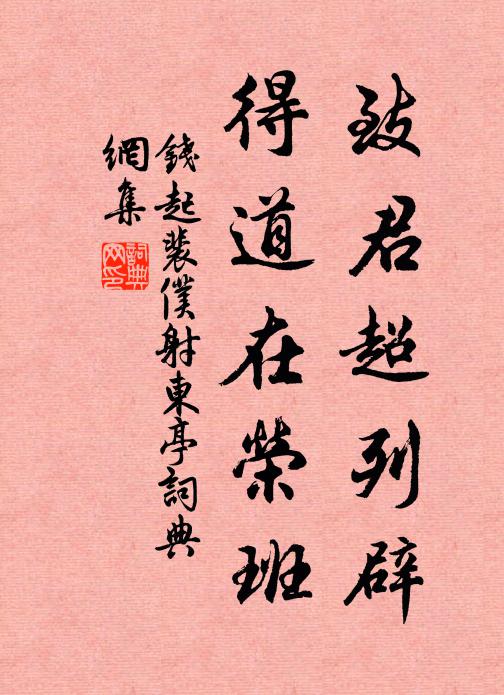 致君超列辟
得道在榮班
錢起裴僕射東亭詞典
網集
詞典网印